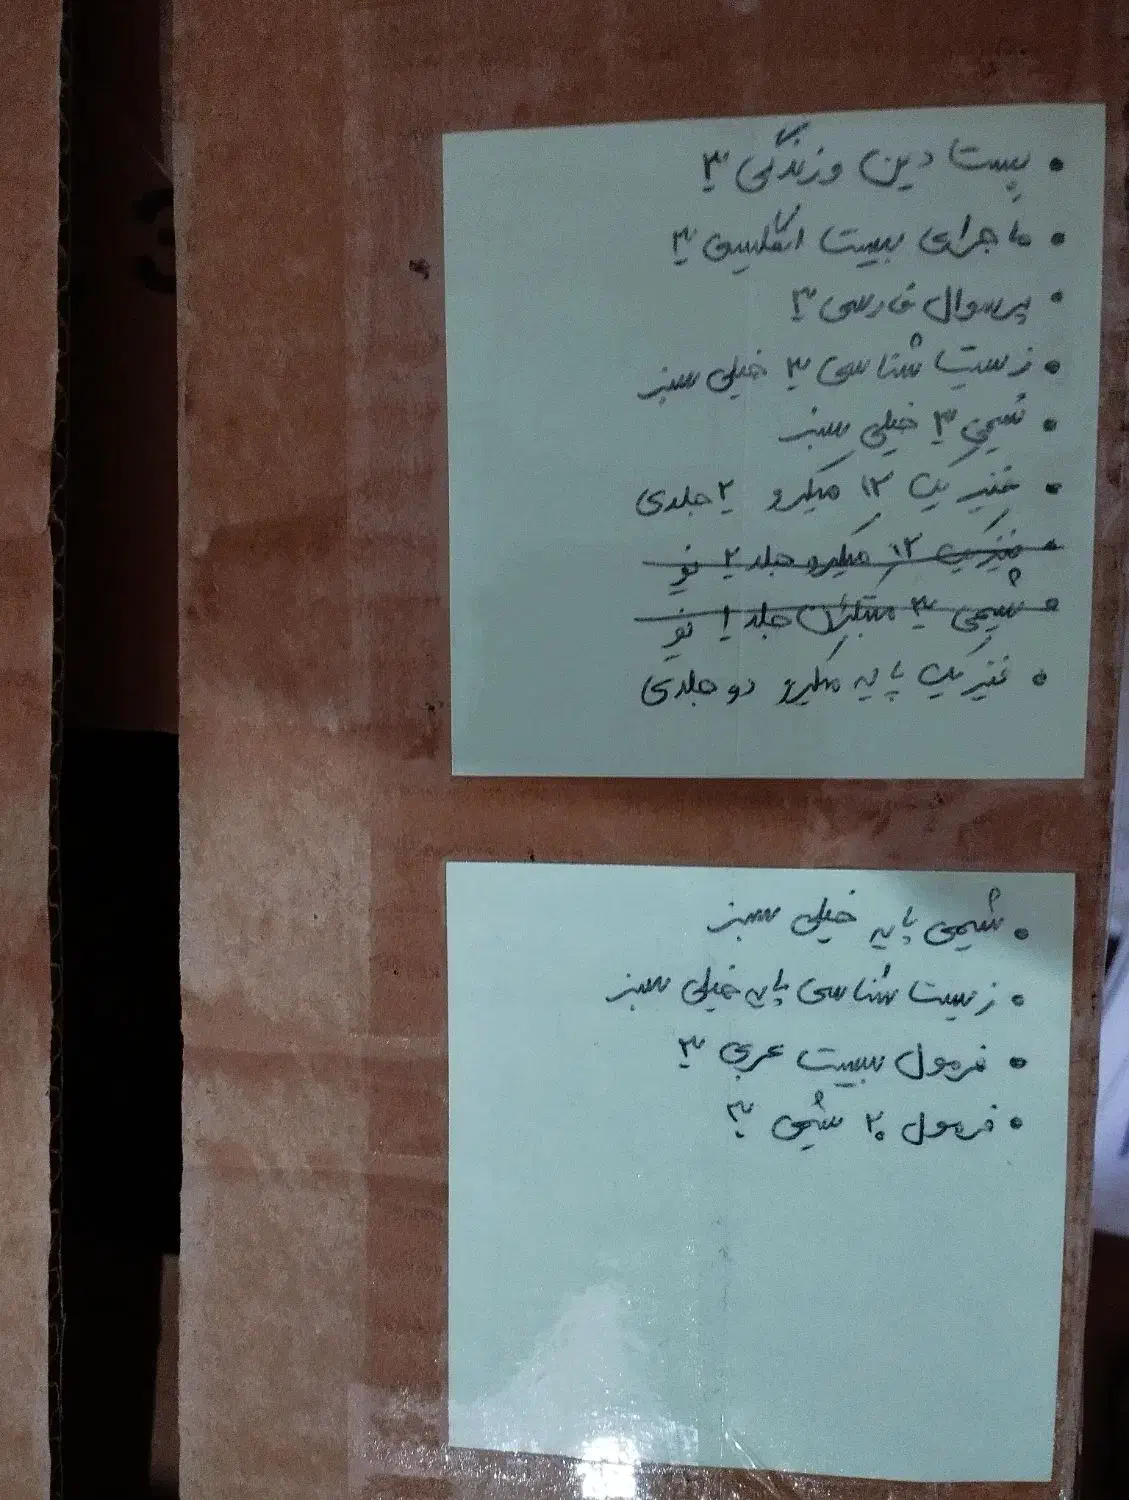 • بیست دین و زندگی ۳
• ماجرای بیست انگلیسی ۳
• پرسوال فارسی ۳
• زیست شناسی ۳ خیلی سبز
• شیمی ۳ خیلی سبز
• فیزیک ۱۲ میکرو ۲ جلدی
• فیزیک ۱۲ میکرو جلد ۲ نو
• شیمی ۳ مبتکران جلد ۱ نو
• فیزیک پایه میکرو دو جلدی
• شیمی پایه خیلی سبز
• زیست شناسی پایه خیلی سبز
• فرمول بیست عربی ۳
• فرمول ۲۰ شیمی ۳